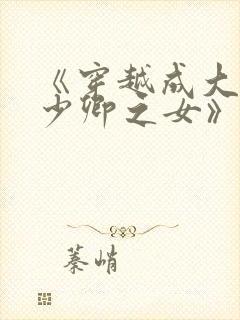 《穿越成大
少卿之女》
蓁峭